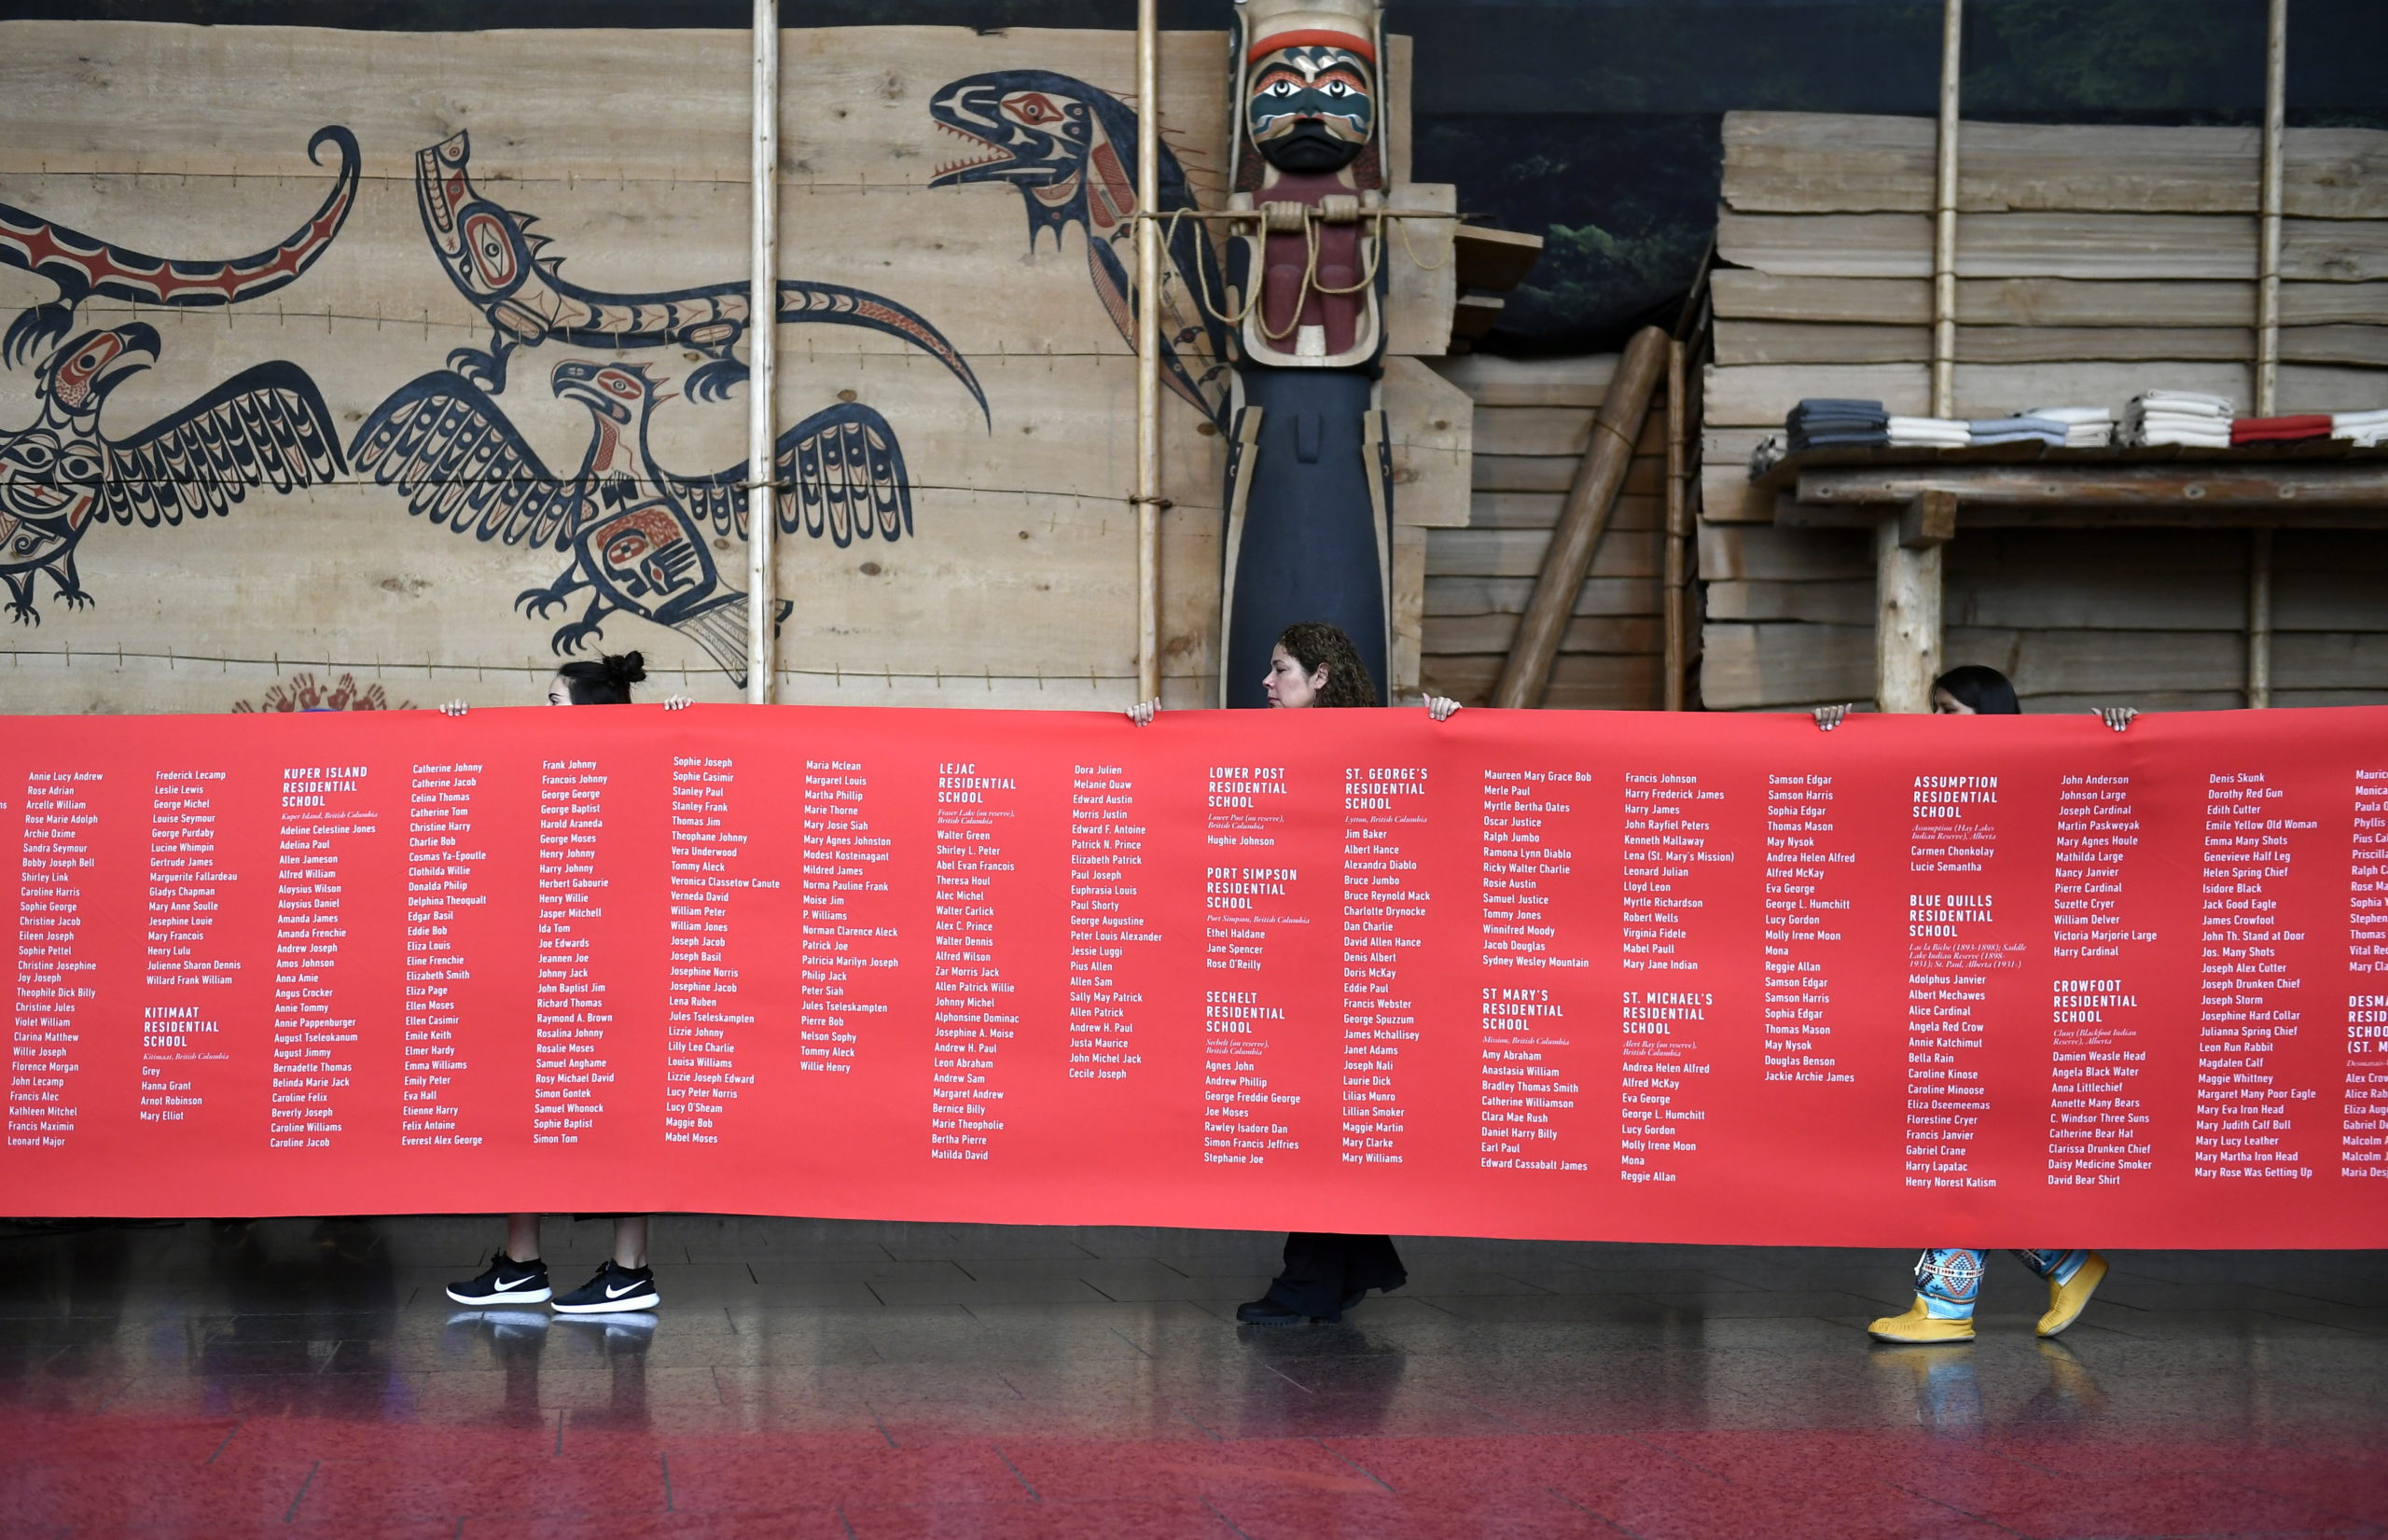 Annie Lucy Andrew
Rose Adrian
Arcelle William
Rose Marie Adolph
Archie Oxime
Sandra Seymour
Bobby Joseph Bell
Shirley Link
Caroline Harris
Sophie George
Christine Jacob
Eileen Joseph
Sophie Pettel
Christine Josephine
Joy Joseph
Theophile Dick Billy
Christine Jules
Violet William
Clarina Matthew
Willie Joseph
Florence Morgan
John Lecamp
Francis Alec
Kathleen Mitchel
Francis Maximin
Leonard Major
Frederick Lecamp
Leslie Lewis
George Michel
Louise Seymour
George Purdaby
Lucine Whimpin
Gertrude James
Marguerite Fallardeau
Gladys Chapman
Mary Anne Soulle
Jesephine Louie
Mary Francois
Henry Lulu
Julienne Sharon Dennis
Willard Frank William
KITIMAAT
RESIDENTIAL
SCHOOL
Kitimaat, British Columbia
Grey
Hanna Grant
Arnot Robinson
Mary Elliot
KUPER ISLAND
RESIDENTIAL
SCHOOL
Kuper Island, British Columbia
Adeline Celestine Jones
Adelina Paul
Allen Jameson
Alfred William
Aloysius Wilson
Aloysius Daniel
Amanda James
Amanda Frenchie
Andrew Joseph
Amos Johnson
Anna Amie
Angus Crocker
Annie Tommy
Annie Pappenburger
August Tseloakanum
August Jimmy
Bernadette Thomas
Belinda Marie Jack
Caroline Felix
Beverly Joseph
Caroline Williams
Caroline Jacob
Catherine Johnny
Catherine Jacob
Celina Thomas
Catherine Tom
Christine Harry
Charlie Bob
Cosmas Ya-Epoutle
Clothilda Willie
Donalda Philip
Delphina Theoqualt
Edgar Basil
Eddie Bob
Eliza Louis
Eline Frenchie
Elizabeth Smith
Eliza Page
Ellen Moses
Ellen Casimir
Emile Keith
Elmer Hardy
Emma Williams
Emily Peter
Eva Hall
Etienne Harry
Felix Antoine
Everest Alex George
Frank Johnny
Francois Johnny
George George
George Baptist
Harold Araneda
George Moses
Henry Johnny
Harry Johnny
Herbert Gabourie
Henry Willie
Jasper Mitchell
Ida Tom
Joe Edwards
Jeannen Joe
Johnny Jack
John Baptist Jim
Richard Thomas
Raymond A. Brown
Rosalina Johnny
Rosalie Moses
Samuel Anghame
Rosy Michael David
Simon Gontek
Samuel Whonock
Sophie Baptist
Simon Tom
Sophie Joseph
Sophie Casimir
Stanley Paul
Stanley Frank
Thomas Jim
Theophane Johnny
Vera Underwood
Tommy Aleck
Veronica Classetow Canute
Verneda David
William Peter
William Jones
Joseph Jacob
Joseph Basil
Josephine Norris
Josephine Jacob
Lena Ruben
Jules Tseleskampten
Lizzie Johnny
Lilly Leo Charlie
Louisa Williams
Lizzie Joseph Edward
Lucy Peter Norris
Lucy O'Sheam
Maggie Bob
Mabel Moses
Maria Mclean
Margaret Louis
Martha Phillip
Marie Thorne
Mary Josie Siah
Mary Agnes Johnston
Modest Kosteinagant
Mildred James
Norma Pauline Frank
Moise Jim
P. Williams
Norman Clarence Aleck
Patrick Joe
Patricia Marilyn Joseph
Philip Jack
Peter Siah
Jules Tseleskampten
Pierre Bob
Nelson Sophy
Tommy Aleck
Willie Henry
LEJAC
RESIDENTIAL
SCHOOL
Fraser Lake (on reserve),
British Columbia
Walter Green
Shirley L. Peter
Abel Evan Francois
Theresa Houl
Alec Michel
Walter Carlick
Alex C. Prince
Walter Dennis
Alfred Wilson
Zar Morris Jack
Allen Patrick Willie
Johnny Michel
Alphonsine Dominac
Josephine A. Moise
Andrew H. Paul
Leon Abraham
Andrew Sam
Margaret Andrew
Bernice Billy
Marie Theopholie
Bertha Pierre
Matilda David
Dora Julien
Melanie Quaw
Edward Austin
Morris Justin
Edward F. Antoine
Patrick N. Prince
Elizabeth Patrick
Paul Joseph
Euphrasia Louis
Paul Shorty
George Augustine
Peter Louis Alexander
Jessie Luggi
Pius Allen
Allen Sam
Sally May Patrick
Allen Patrick
Andrew H. Paul
Justa Maurice
John Michel Jack
Cecile Joseph
LOWER POST
RESIDENTIAL
SCHOOL
Lower Post (on reserve),
British Columbia
Hughie Johnson
PORT SIMPSON
RESIDENTIAL
SCHOOL
Port Simpson, British Columbia
Ethel Haldane
Jane Spencer
Rose O'Reilly
SECHELT
RESIDENTIAL
SCHOOL
Sechelt (on reserve),
British Columbia
Agnes John
Andrew Phillip
George Freddie George
Joe Moses
Rawley Isadore Dan
Simon Francis Jeffries
Stephanie Joe
ST. GEORGE'S
RESIDENTIAL
SCHOOL
Lytton, British Columbia
Jim Baker
Albert Hance
Alexandra Diablo
Bruce Jumbo
Bruce Reynold Mack
Charlotte Drynocke
Dan Charlie
David Allen Hance
Denis Albert
Doris McKay
Eddie Paul
Francis Webster
George Spuzzum
James Mchallisey
Janet Adams
Joseph Nali
Laurie Dick
Lilias Munro
Lillian Smoker
Maggie Martin
Mary Clarke
Mary Williams
Maureen Mary Grace Bob
Merle Paul
Myrtle Bertha Oates
Oscar Justice
Ralph Jumbo
Ramona Lynn Diablo
Ricky Walter Charlie
Rosie Austin
Samuel Justice
Tommy Jones
Winnifred Moody
Jacob Douglas
Sydney Wesley Mountain
ST MARY'S
RESIDENTIAL
SCHOOL
Mission, British Columbia
Amy Abraham
Anastasia William
Bradley Thomas Smith
Catherine Williamson
Clara Mae Rush
Daniel Harry Billy
Earl Paul
Edward Cassabalt James
Francis Johnson
Harry Frederick James
Harry James
John Rayfiel Peters
Kenneth Mallaway
Lena (St. Mary's Mission)
Leonard Julian
Lloyd Leon
Myrtle Richardson
Robert Wells
Virginia Fidele
Mabel Paull
Mary Jane Indian
ST. MICHAEL'S
RESIDENTIAL
SCHOOL
Alert Bay (on reserve),
British Columbia
Andrea Helen Alfred
Alfred McKay
Eva George
George L. Humchitt
Lucy Gordon
Molly Irene Moon
Mona
Reggie Allan
Samson Edgar
Samson Harris
Sophia Edgar
Thomas Mason
May Nysok
Andrea Helen Alfred
Alfred McKay
Eva George
George L. Humchitt
Lucy Gordon
Molly Irene Moon
Mona
Reggie Allan
Samson Edgar
Samson Harris
Sophia Edgar
Thomas Mason
May Nysok
Douglas Benson
Jackie Archie James
ASSUMPTION
RESIDENTIAL
SCHOOL
Assumption (Hay Lakes
Indian Reserve), Alberta
Carmen Chonkolay
Lucie Semantha
BLUE QUILLS
RESIDENTIAL
SCHOOL
Lac la Biche (1893-1898); Saddle
Lake Indian Reserve (1898-
1931); St. Paul, Alberta (1931-)
Adolphus Janvier
Albert Mechawes
Alice Cardinal
Angela Red Crow
Annie Katchimut
Bella Rain
Caroline Kinose
Caroline Minoose
Eliza Oseemeemas
Florestine Cryer
Francis Janvier
Gabriel Crane
Harry Lapatac
Henry Norest Kalism
John Anderson
Johnson Large
Joseph Cardinal
Martin Paskweyak
Mary Agnes Houle
Mathilda Large
Nancy Janvier
Pierre Cardinal
Suzette Cryer
William Delver
Victoria Marjorie Large
Harry Cardinal
CROWFOOT
RESIDENTIAL
SCHOOL
Cluny (Blackfoot Indian
Reserve), Alberta
Damien Weasle Head
Angela Black Water
Anna Littlechief
Annette Many Bears
C. Windsor Three Suns
Catherine Bear Hat
Clarissa Drunken Chief
Daisy Medicine Smoker
David Bear Shirt
Denis Skunk
Dorothy Red Gun
Edith Cutter
Emile Yellow Old Woman
Emma Many Shots
Genevieve Half Leg
Helen Spring Chief
Isidore Black
Jack Good Eagle
James Crowfoot
John Th. Stand at Door
Jos. Many Shots
Joseph Alex Cutter
Joseph Drunken Chief
Joseph Storm
Josephine Hard Collar
Julianna Spring Chief
Leon Run Rabbit
Magdalen Calf
Maggie Whittney
Margaret Many Poor Eagle
Mary Eva Iron Head
Mary Judith Calf Bull
Mary Lucy Leather
Mary Martha Iron Head
Mary Rose Was Getting Up
Monica
Phyllis
Pius
Ralph
Rose
Sophia
Thomas
Vital
Mary
(ST.
Alex
Alice
Eliza
Gabriel
Malcolm
Malcolm
Maria